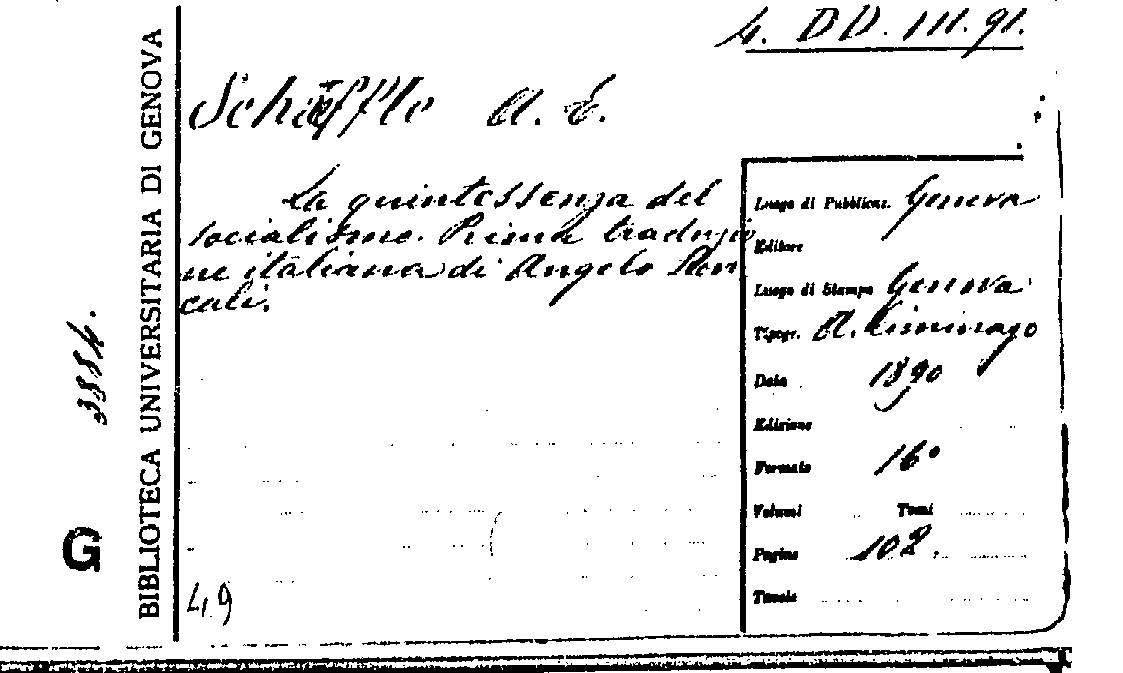 4. DD. III. 91.
Schäffle A. E.
La quintessenza del
socialismo. Prima traduzio
ne italiana di Angelo Ron
cali.
Luogo di Pubblicaz. Genova
Editore
Luogo di Stampa Genova
Tipogr. A. Ciminago
Data 1890
Edizione
Formato 16°
Volumi Tomi
Pagine 102.
Tavole
49
BIBLIOTECA UNIVERSITARIA DI GENOVA
3884.
G